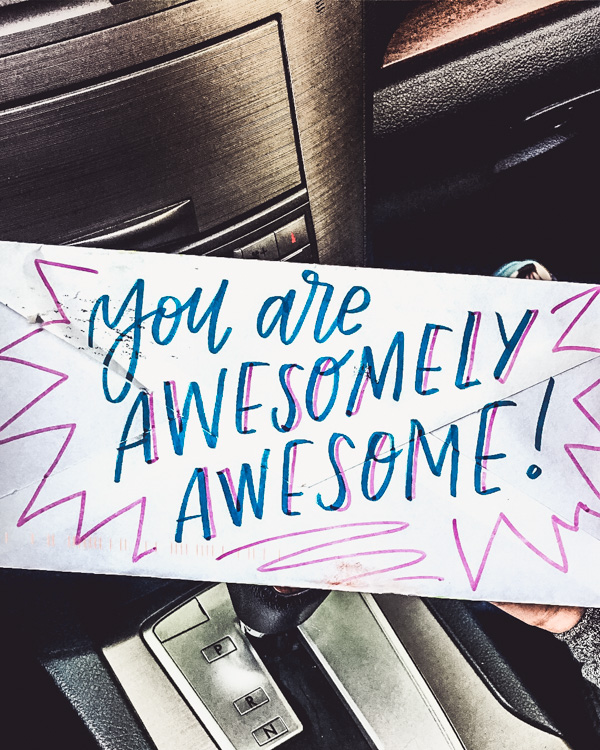 you are
AWESOMELY
AWESOME!
P
R
N